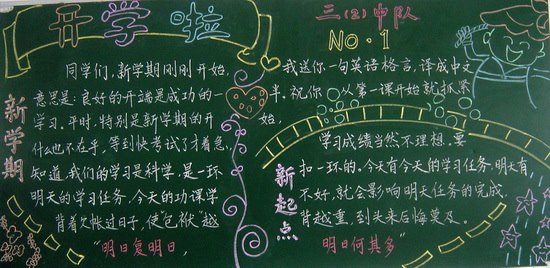 开学啦
三(2)中队
NO.1
新学期
同学们,新学期刚刚开始,我送你一句英语格言,译成中文
意思是:良好的开端是成功的一半.祝你 从第一课开始就抓紧
学习.平时,特别是新学期的开始
什么也不在乎,等到快考试了才着急, 学习成绩当然不理想.要
知道,我们的学习是科学,是一环扣一环的.今天有今天的学习任务,明天有
明天的学习任务,今天的功课学不好,就会影响明天任务的完成.
背着欠帐过日子,使"包袱"越背越重,到头来后悔莫及.
新起点
"明日复明日,
明日何其多"